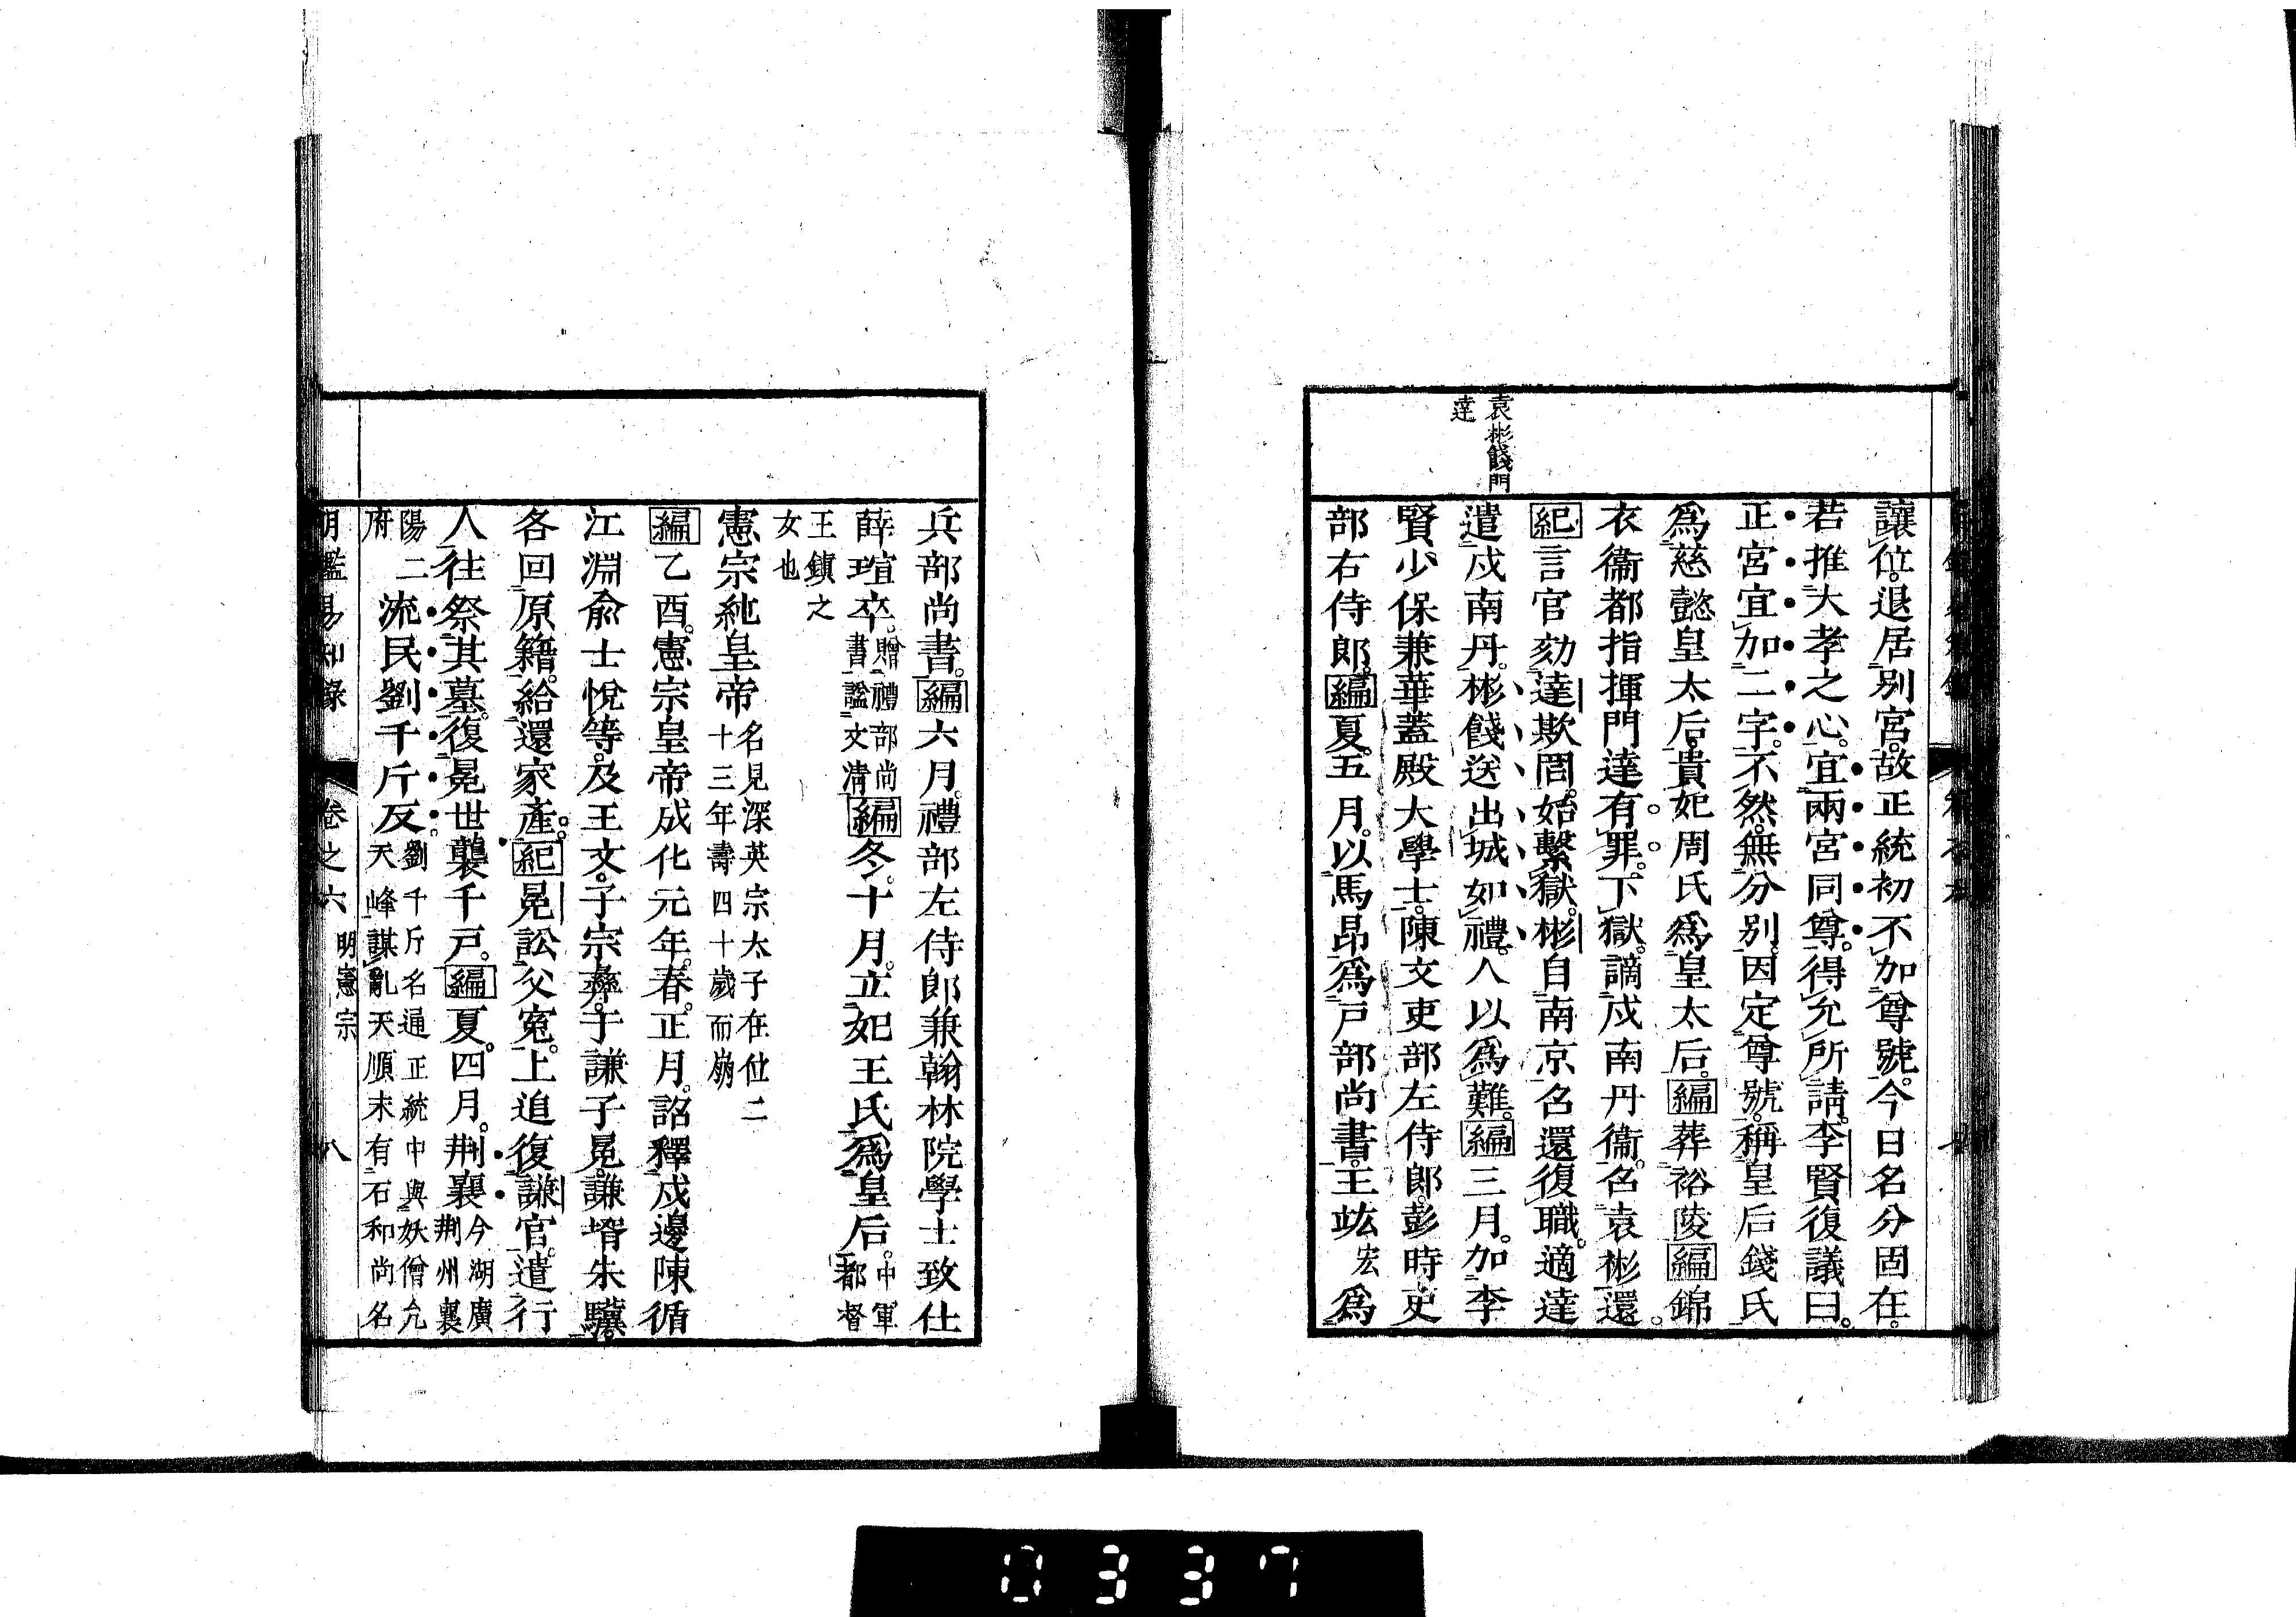 袁彬餞門
達
讓位。退居別宮。故正統初不加尊號。今日名分固在。
若推大孝之心。宜兩宮同尊。得允所請。李賢復議曰。
正宮宜加二字。不然。無分別。因定尊號。稱皇后錢氏
爲慈懿皇太后。貴妃周氏爲皇太后。編葬裕陵編錦
衣衞都指揮門達有罪。下獄。謫戍南丹衞。召袁彬還。
紀言官劾達欺罔。始繫獄。彬自南京召還復職。適達
遣戍南丹。彬餞送出城如禮。人以爲難。編三月。加李
賢少保兼華蓋殿大學士。陳文吏部左侍郎。彭時吏
部右侍郎。編夏。五月。以馬昂爲戶部尚書。王竑宏爲
兵部尚書。編六月。禮部左侍郎兼翰林院學士致仕
薛瑄卒。贈禮部尚書謚文清編冬。十月。立妃王氏爲皇后。中軍都督
王鎭之女也
憲宗純皇帝名見深英宗太子在位二十三年壽四十歲而崩
編乙酉。憲宗皇帝成化元年。春。正月。詔釋戍邊陳循
江淵兪士悅等。及王文。子宗彝。于謙子冕。謙壻朱驥。
各回原籍。給還家產。紀冕訟父冤。上追復謙官。遣行
人往祭其墓。復冕世襲千戶。編夏。四月。荆襄今湖廣荆州襄
陽二府流民劉千斤反。劉千斤名通正統中與妖僧允天峰謀亂天順末有石和尚名
明鑑易知錄 卷之六 明憲宗 八